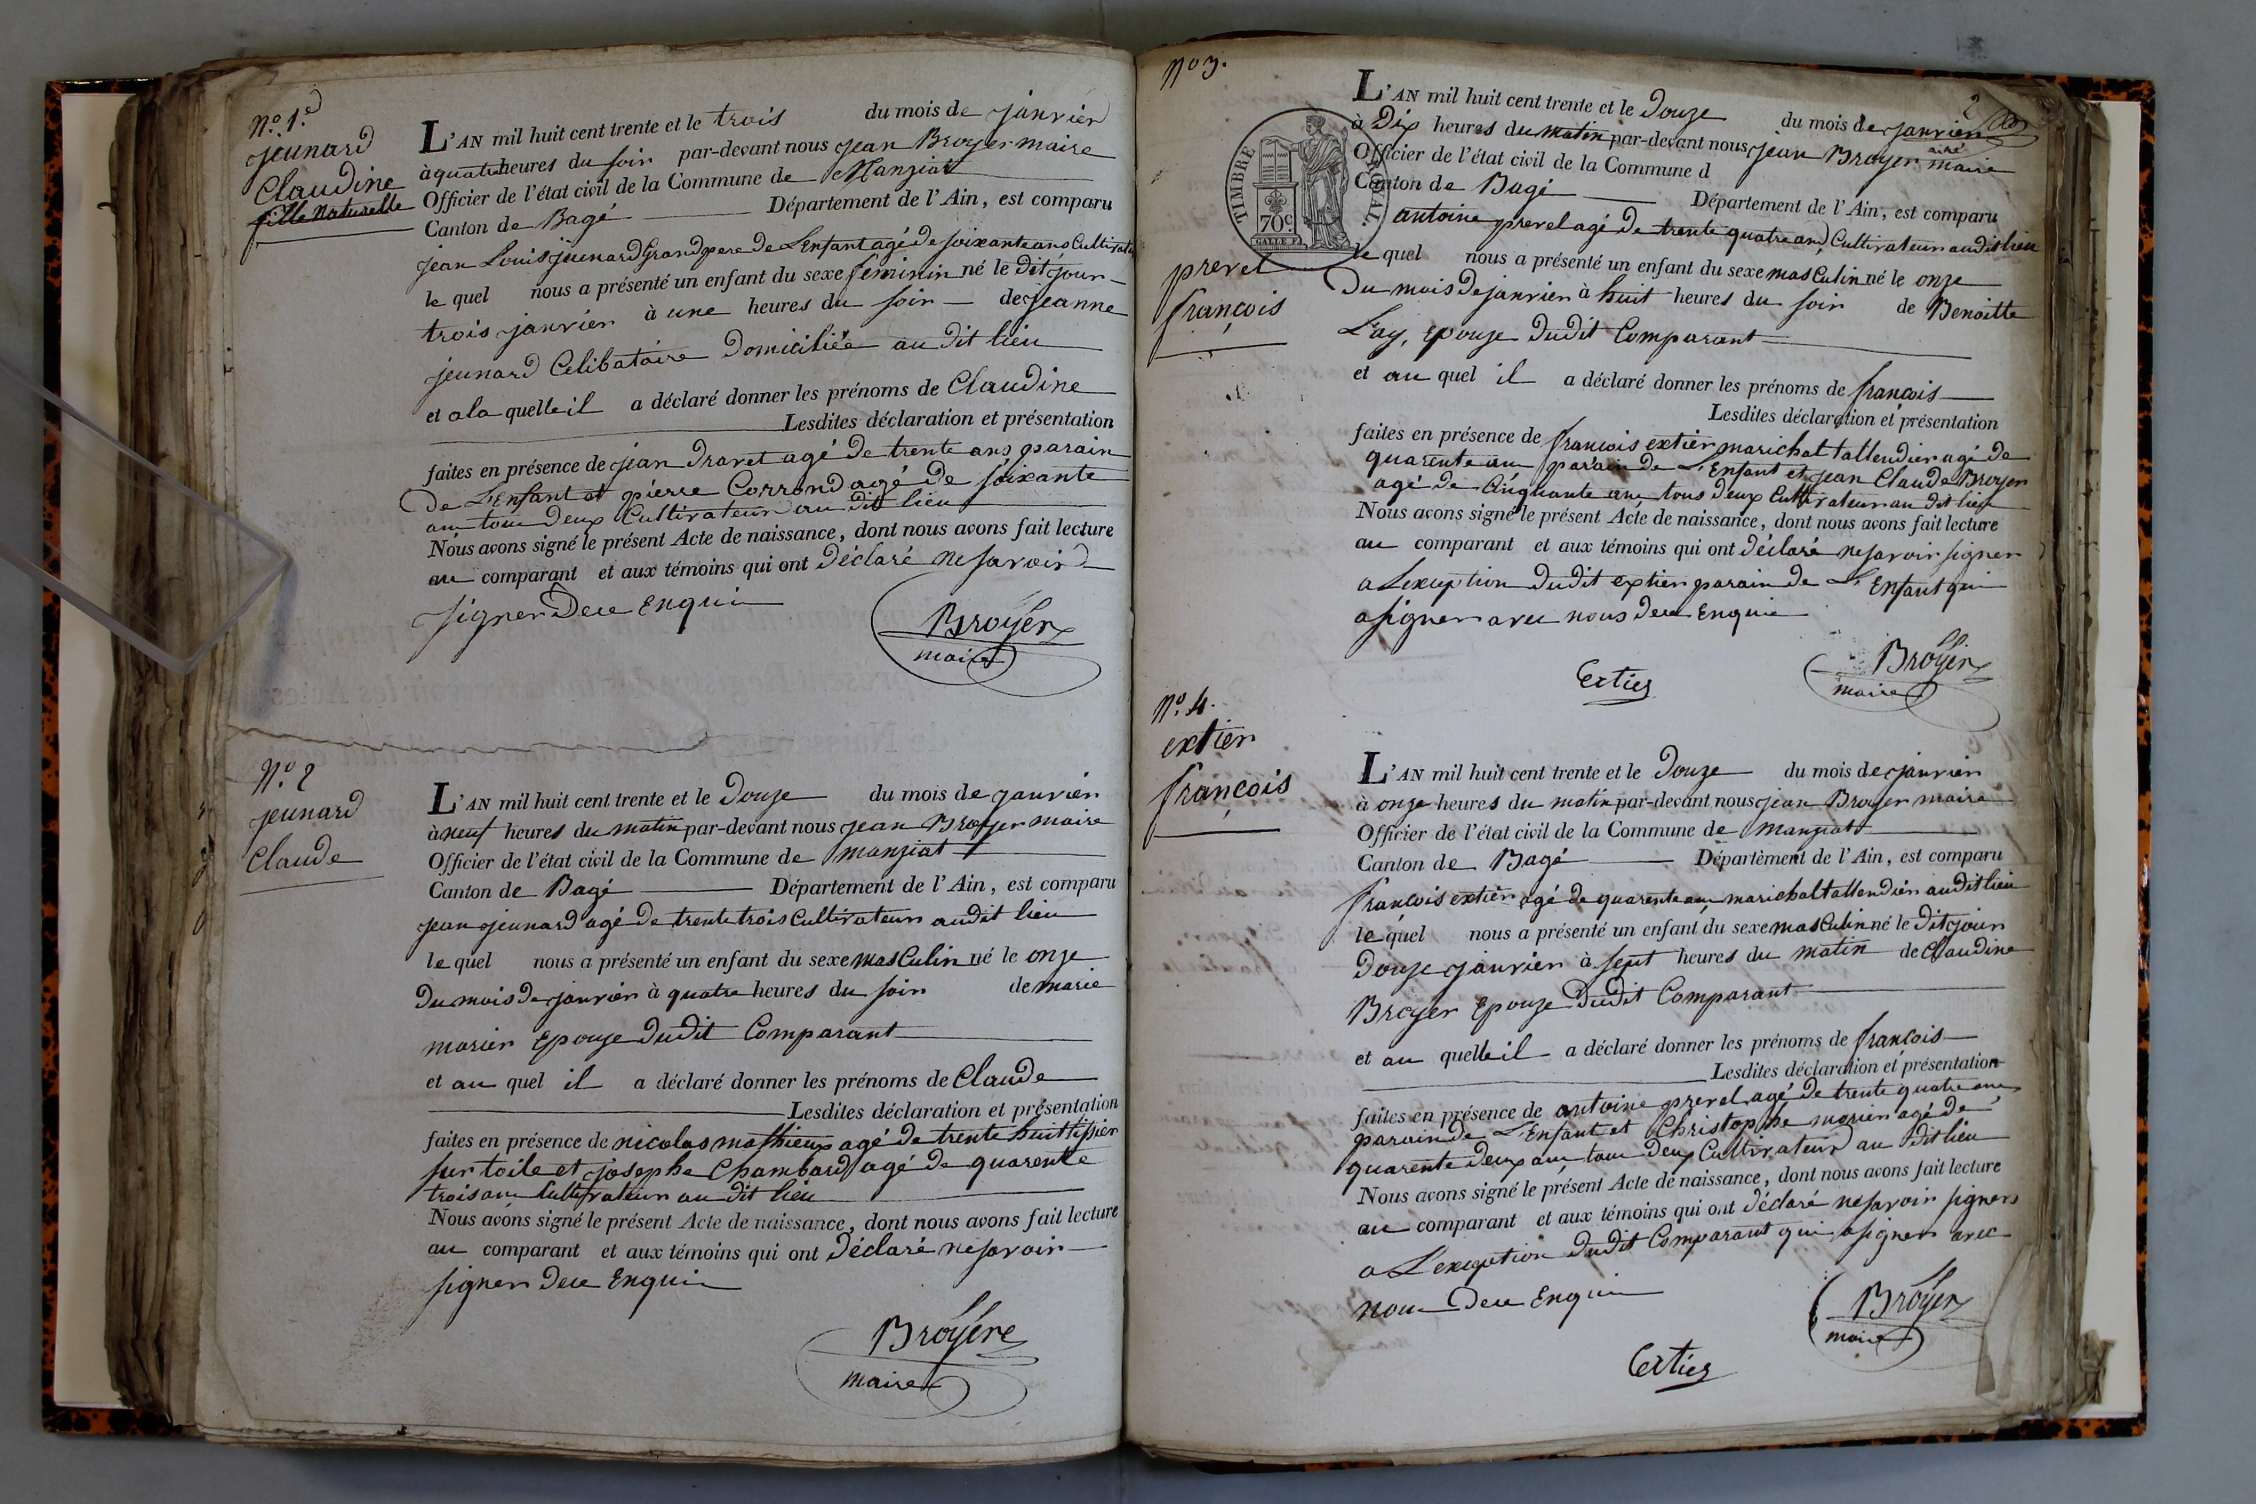 No. 1.
jeunard
Claudine
fille Naturelle
L'AN mil huit cent trente et le trois du mois de janvier
à quatre heures du soir par-devant nous jean Broyer maire
Officier de l'état civil de la Commune de Manziat
Canton de Bagé Département de l'Ain, est comparu
jean Louis jeunard Grand pere de L'Enfant agé de soixante ans Cultivateur
le quel nous a présenté un enfant du sexe feminin né le dit jour
trois janvier à une heures du soir de Jeanne
jeunard Celibataire Domiciliée au dit lieu
et a la quelle il a déclaré donner les prénoms de Claudine
Lesdites déclaration et présentation
faites en présence de jean Dravet agé de trente ans parain
De L'Enfant et pierre Corrand agé de soixante
ans tous deux Cultivateur au dit lieu
Nous avons signé le présent Acte de naissance, dont nous avons fait lecture
au comparant et aux témoins qui ont Déclaré ne savoir
signer De ce Enquis
Broyer
maire
No. 2
jeunard
Claude
L'AN mil huit cent trente et le Douze du mois de janvier
à neuf heures du matin par-devant nous jean Broyer maire
Officier de l'état civil de la Commune de manziat
Canton de Bagé Département de l'Ain, est comparu
jean jeunard agé de trente trois Cultivateur audit lieu
le quel nous a présenté un enfant du sexe masculin né le onze
Du mois De janvier à quatre heures du soir de marie
morier Epouze Dudit Comparant
et au quel il a déclaré donner les prénoms de Claude
Lesdites déclaration et présentation
faites en présence de nicolas mathieux agé de trente huit tissier
sur toile et josephe Chambard agé de quarente
trois ans Cultivateur au dit lieu
Nous avons signé le présent Acte de naissance, dont nous avons fait lecture
au comparant et aux témoins qui ont Déclaré ne savoir
signer De ce Enquis
Broyere
maire
No 3.
2
TIMBRE ROYAL.
70c.
prevel
françois
L'AN mil huit cent trente et le Douze du mois de janvier
à Dix heures du matin par-devant nous jean Broyer maire
Officier de l'état civil de la Commune d
Canton de Bagé Département de l'Ain, est comparu
antoine prevel agé De trente quatre ans Cultivateur audit lieu
le quel nous a présenté un enfant du sexe masculin né le onze
Du mois De janvier à huit heures du soir de Benoitte
Lay, epouze Dudit Comparant
et au quel il a déclaré donner les prénoms de françois
Lesdites déclaration et présentation
faites en présence de françois extier marichal tallendier agé de
quarente ans parain De L'Enfant et jean Claude Broyer
agé de Cinquante ans tous Deux Cultivateur au dit lieu
Nous avons signé le présent Acte de naissance, dont nous avons fait lecture
au comparant et aux témoins qui ont Déclaré ne savoir signer
a L'exception Dudit extier parain de L'Enfant qui
a signer avec nous De ce Enquis
Extier
Broyer
maire
No. 4.
extier
françois
L'AN mil huit cent trente et le Douze du mois de janvier
à onze heures du matin par-devant nous jean Broyer maire
Officier de l'état civil de la Commune de manziat
Canton de Bagé Département de l'Ain, est comparu
françois extier agé de quarente ans marichal tallendier audit lieu
le quel nous a présenté un enfant du sexe masculin né le Dit jour
Douze janvier à sept heures du matin de Claudine
Broyer Epouze Dudit Comparant
et au quelle il a déclaré donner les prénoms de françois
Lesdites déclaration et présentation
faites en présence de antoine prevel agé de trente quatre ans
parain de L'Enfant et Christophe morier agé de
quarente deux ans tous deux Cultivateur au Dit lieu
Nous avons signé le présent Acte de naissance, dont nous avons fait lecture
au comparant et aux témoins qui ont Déclaré ne savoir signer
a L'exception Dudit Comparant qui a signer avec
nous De ce Enquis
Extier
Broyer
maire